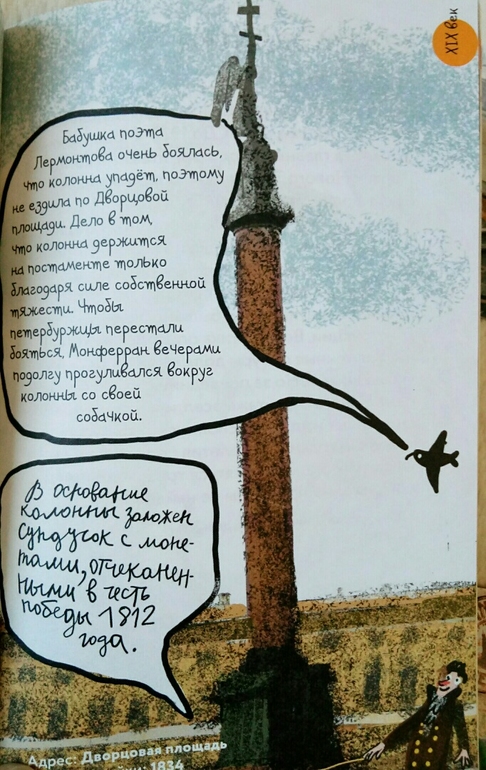 XIX век
Бабушка поэта
Лермонтова очень боялась,
что колонна упадёт, поэтому
не ездила по Дворцовой
площади. Дело в том,
что колонна держится
на постаменте только
благодаря силе собственной
тяжести. Чтобы
петербуржцы перестали
бояться, Монферран вечерами
подолгу прогуливался вокруг
колонны со своей
собачкой.
В основание
колонны заложен
сундучок с моне-
тами, отчеканен-
ными в честь
победы 1812
года.
Адрес: Дворцовая площадь
1834